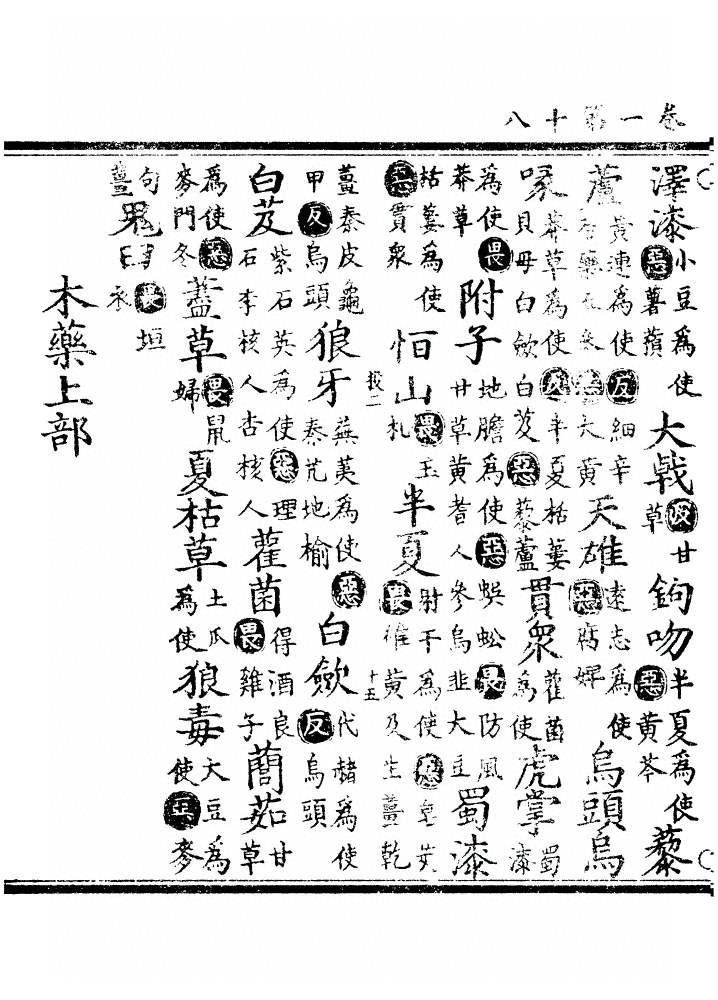 卷一第十八
澤漆小豆為使惡薯蕷大戟反甘草鉤吻半夏為使惡黃芩藜
蘆黃連為使反細辛芍藥五參惡大黃天雄遠志為使惡腐婢烏頭烏
喙莽草為使反半夏栝蔞貝母白歛白芨惡藜蘆貫衆雚菌為使虎掌蜀漆
為使畏莽草附子地膽為使惡蜈蚣畏防風甘草黃耆人參烏韭大豆蜀漆
栝蔞為使惡貫衆恒山畏玉札半夏射干為使惡皂莢畏雄黃及生薑乾
投二 十五
薑秦皮龜甲反烏頭狼牙蕪荑為使惡秦艽地榆白歛代赭為使反烏頭
白芨紫石英為使惡理石李核人杏核人雚菌得酒良畏雞子䕡茹甘草
為使惡麥門冬藎草畏鼠婦夏枯草土瓜為使狼毒大豆為使惡麥
句薑鬼臼畏垣衣
木藥上部